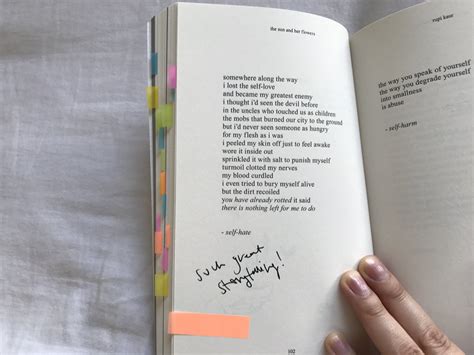 the sun and her flowers
somewhere along the way
i lost the self-love
and became my greatest enemy
i thought i'd seen the devil before
in the uncles who touched us as children
the mobs that burned our city to the ground
but i'd never seen someone as hungry
for my flesh as i was
i peeled my skin off just to feel awake
wore it inside out
sprinkled it with salt to punish myself
turmoil clotted my nerves
my blood curdled
i even tried to bury myself alive
but the dirt recoiled
you have already rotted it said
there is nothing left for me to do
- self-hate
such great
storytelling!
102
rupi kaur
the way you speak of yourself
the way you degrade yourself
into smallness
is abuse
- self-harm